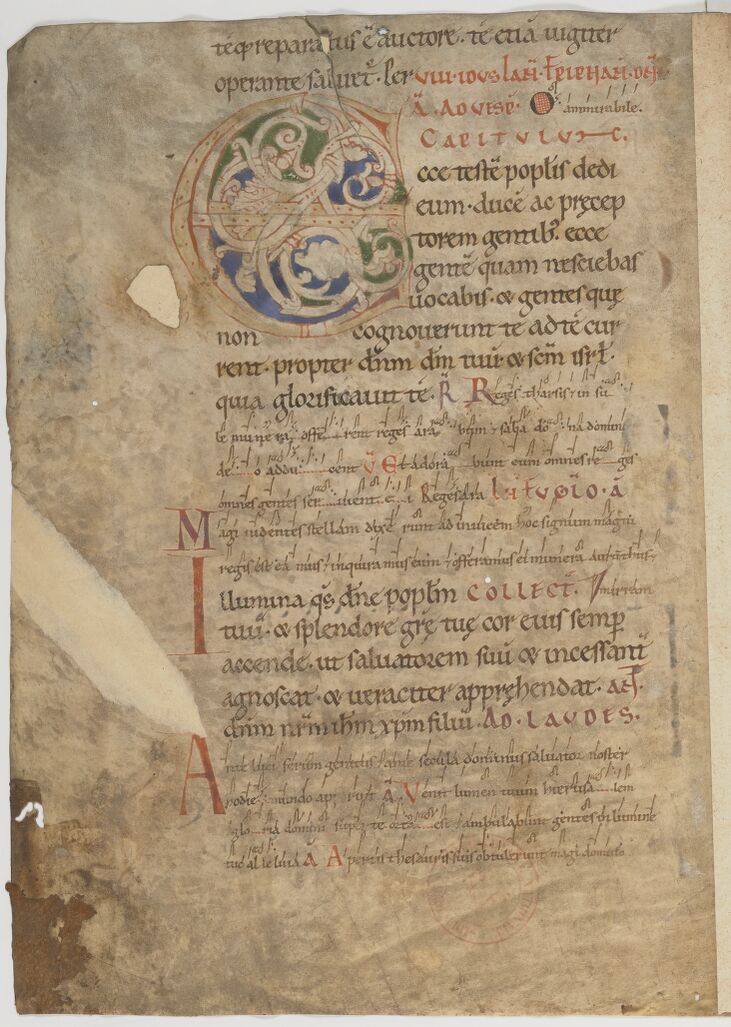 reparatus ē auctore. te etiā iugiter
operante saluet͛. Per VIII IDVS IAN̄.
Ā. AD VESP̄. O āmirabile.
CAPITVLVM.
Ecce testē popl̄is dedi
eum. ducē ac pręcep
torem gentib; ecce
gentē quam nesciebas
uocabis. & gentes quę
non cognouerunt te ad te cur
rent. propter dn̄m dm̄ tuū & sc̄m isrl̄.
quia glorificauit te. R̄ Reges tharsis & insu
le munera offerent reges arabum & saba dona domino
deo adducent V̄ Et adorabunt eum omnes reges
omnes gentes seruient ei Reges ara
Magi uidentes stellam dixerunt ad inuicem hoc signum magni
regis est eamus & inquiramus eum & offeramus ei munera aurum thus &
mirram
Illumina qs̄ dn̄e popl̄m COLLECT̄.
tuū. & splendore grę tuę cor eius semp
accende. ut saluatorem suū & incessant̄
agnoscat. & ueraciter appręhendat.
dn̄m nr̄m ih̄m xp̄m filiū. AD LAVDES.
Ante luciferum genitus & ante secula dominus saluator noster
hodie mundo apparuit Ā Venit lumen tuum hierusalem
& gloria domini super te orta est & ambulabunt gentes in lumine
tuo alleluia A Apertis thesauris suis obtulerunt magi domino